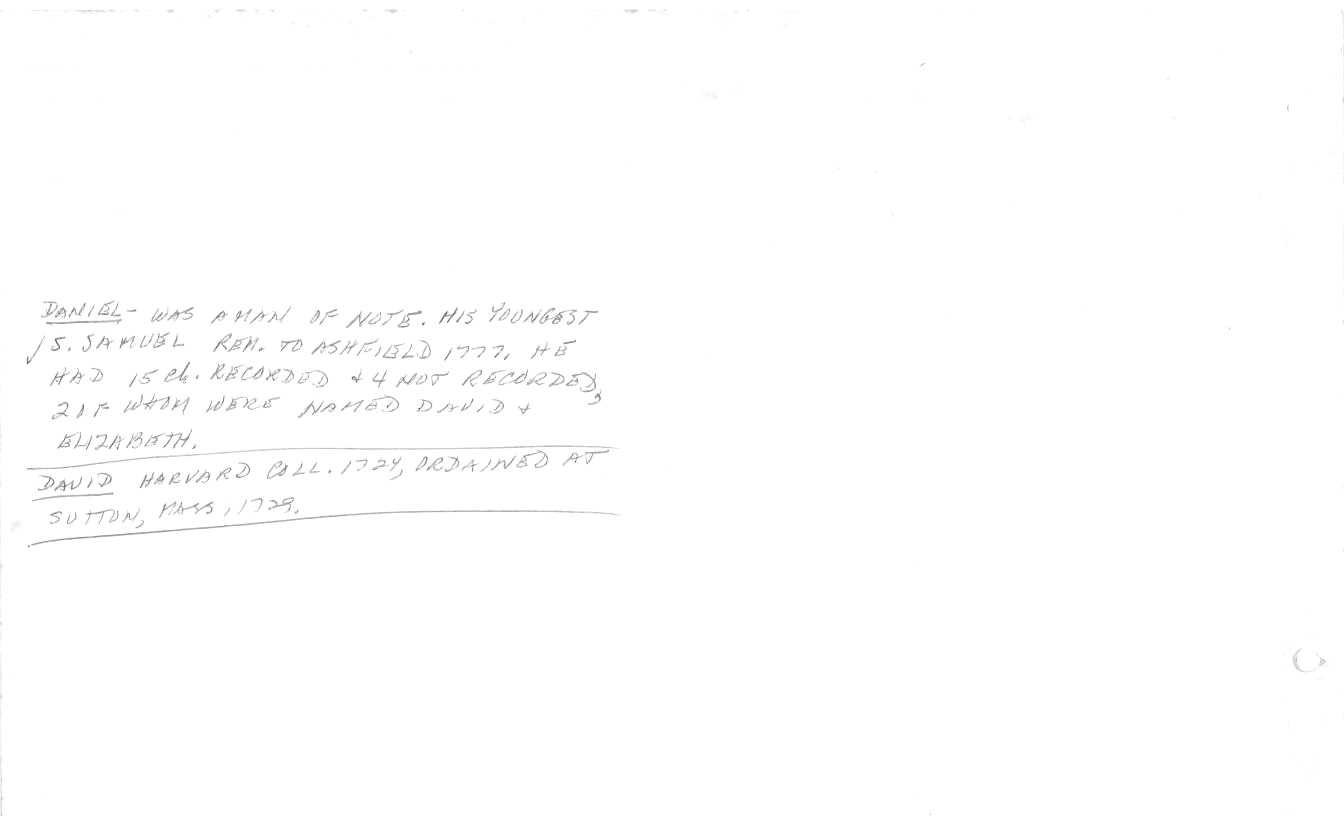 DANIEL - WAS A MAN OF NOTE. HIS YOUNGEST
S. SAMUEL REM. TO ASHFIELD 1777. HE
HAD 15 Ch. RECORDED & 4 NOT RECORDED,
2 OF WHOM WERE NAMED DAVID &
ELIZABETH.
DAVID HARVARD COLL. 1724, ORDAINED AT
SUTTON, MASS, 1729.